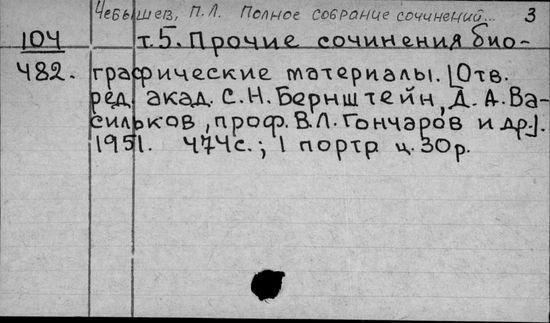 Чебышев, П.Л. Полное собрание сочинений... 3
104 т.5. Прочие сочинения био-
482. графические материалы. [Отв.
ред. акад. С.Н. Бернштейн, Д.А. Ва-
сильков, проф. В.Л. Гончаров и др.].
1951. 474с.; 1 портр ц. 30р.